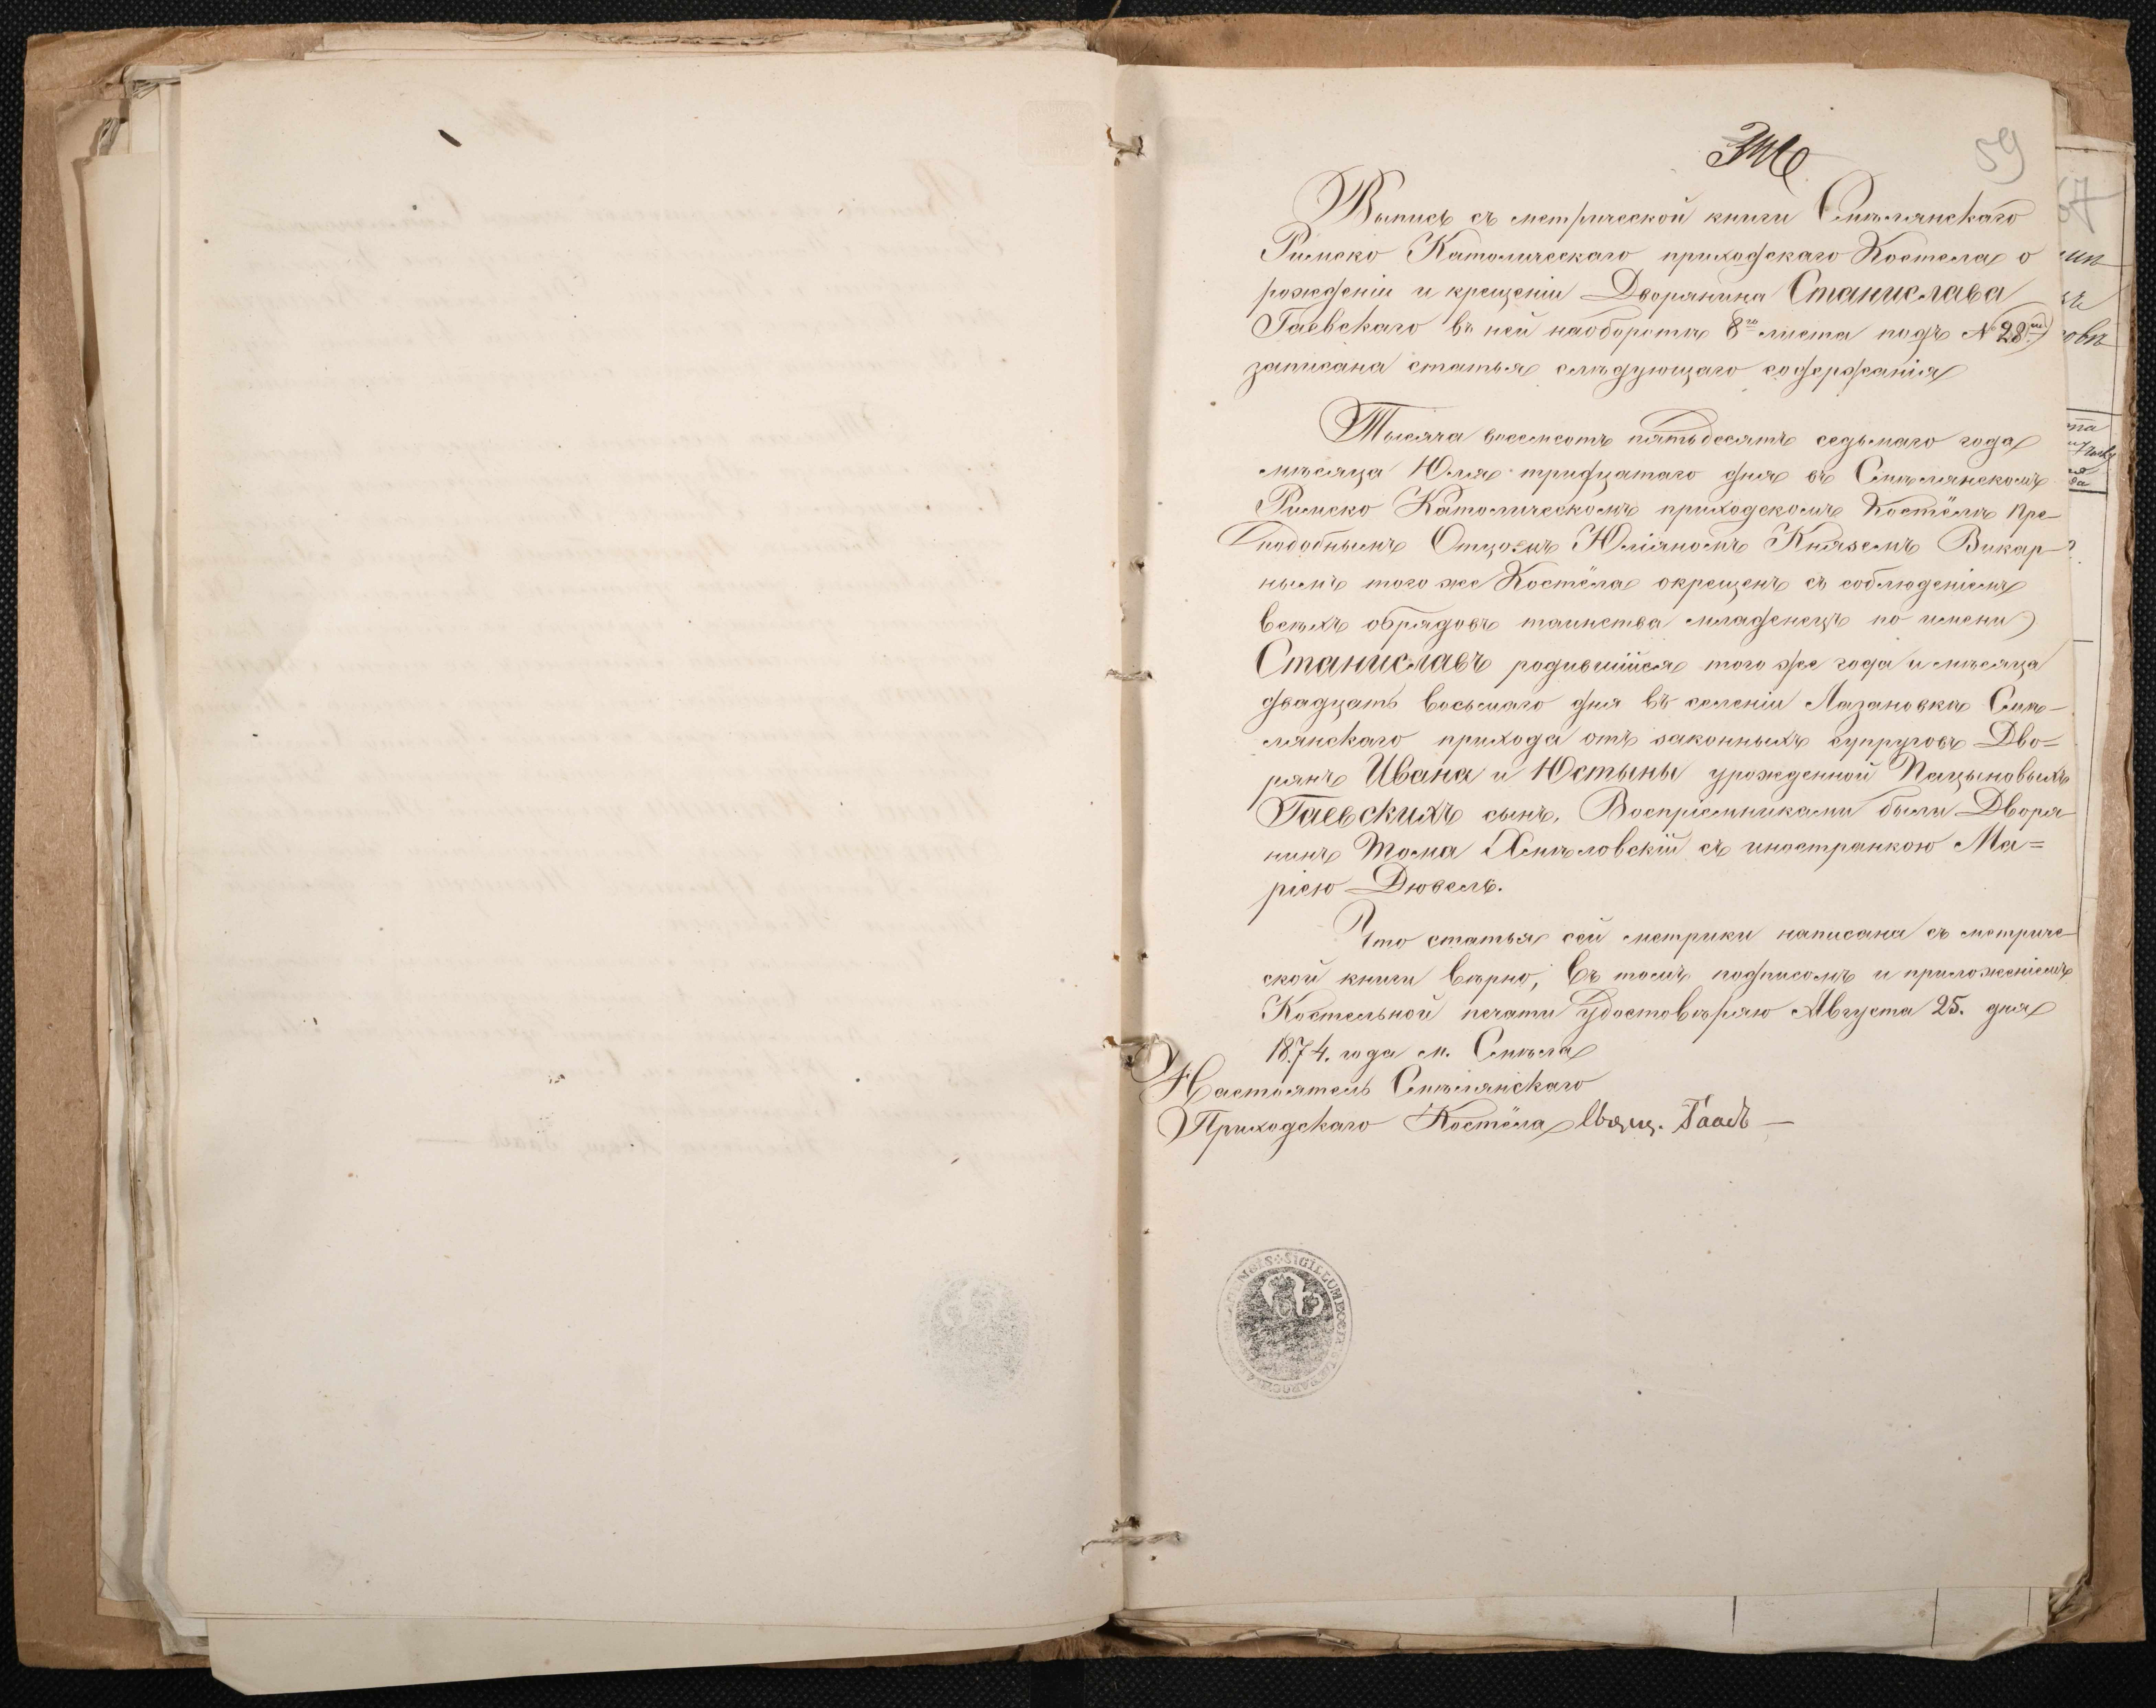 59
Выпись съ метрической книги Смѣлянскаго
Римско Католическаго приходскаго Костела о
рожденіи и крещеніи Дворянина Станислава
Гаевскаго въ ней наоборотѣ 8го листа подъ № 28мъ
записана статья слѣдующаго содержанія
Тысяча восемсотъ пятьдесятъ седьмаго года
мѣсяца Юля тридцатаго дня въ Смѣлянскомъ
Римско Католическомъ приходскомъ Костёлѣ Пре-
подобнымъ Отцомъ Юліяномъ Княземъ Викар-
нымъ того же Костёла окрещенъ съ соблюденіемъ
всѣхъ обрядовъ таинства младенецъ по имени
Станиславъ родившійся того же года и мѣсяца
двадцать восьмаго дня въ селеніи Лазановкѣ Смѣ-
лянскаго прихода отъ законныхъ супруговъ Дво=
рянъ Ивана и Юстыны урожденной Пацыновыхъ
Гаевскихъ сынъ. Воспріемниками были Дворя-
нинъ Тома Хмѣловскій съ иностранкою Ма=
ріею Дювель.
Что статья сей метрики написана съ метриче-
ской книги вѣрно, въ томъ подписомъ и приложеніемъ
Костельной печати удостовѣряю Августа 25. дня
1874. года м. Смѣла
Настоятель Смѣлянскаго
Приходскаго Костёла Свящ. Гаадъ —
SIGILLUM
67